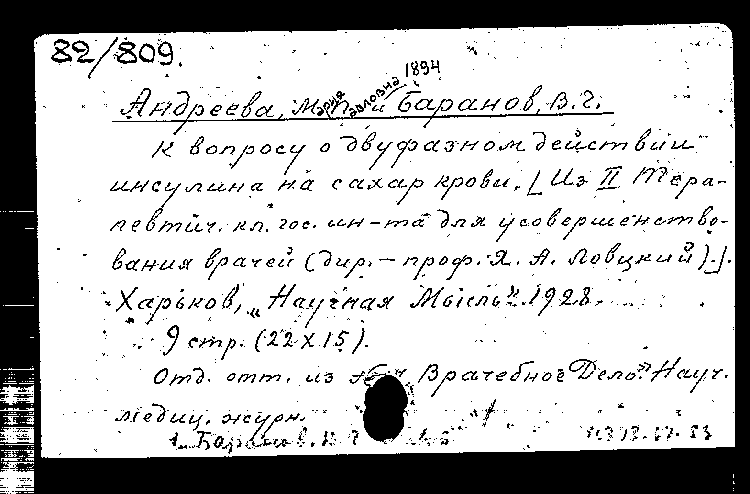 82/809.
1894
Андреева, Мария Павловна и Баранов, В.Г.
К вопросу о двуфазном действии
инсулина на сахар крови. [Из II Тера-
певтич. кл. гос. ин-та для усовершенство-
вания врачей (дир. - проф. Я. А. Ловцкий).].
Харьков, „Научная Мысль". 1928.
9 стр. (22х15).
Отд. отт. из „Врачебное Дело". Науч.
медиц. журн.
1. Баранов. В. Г.